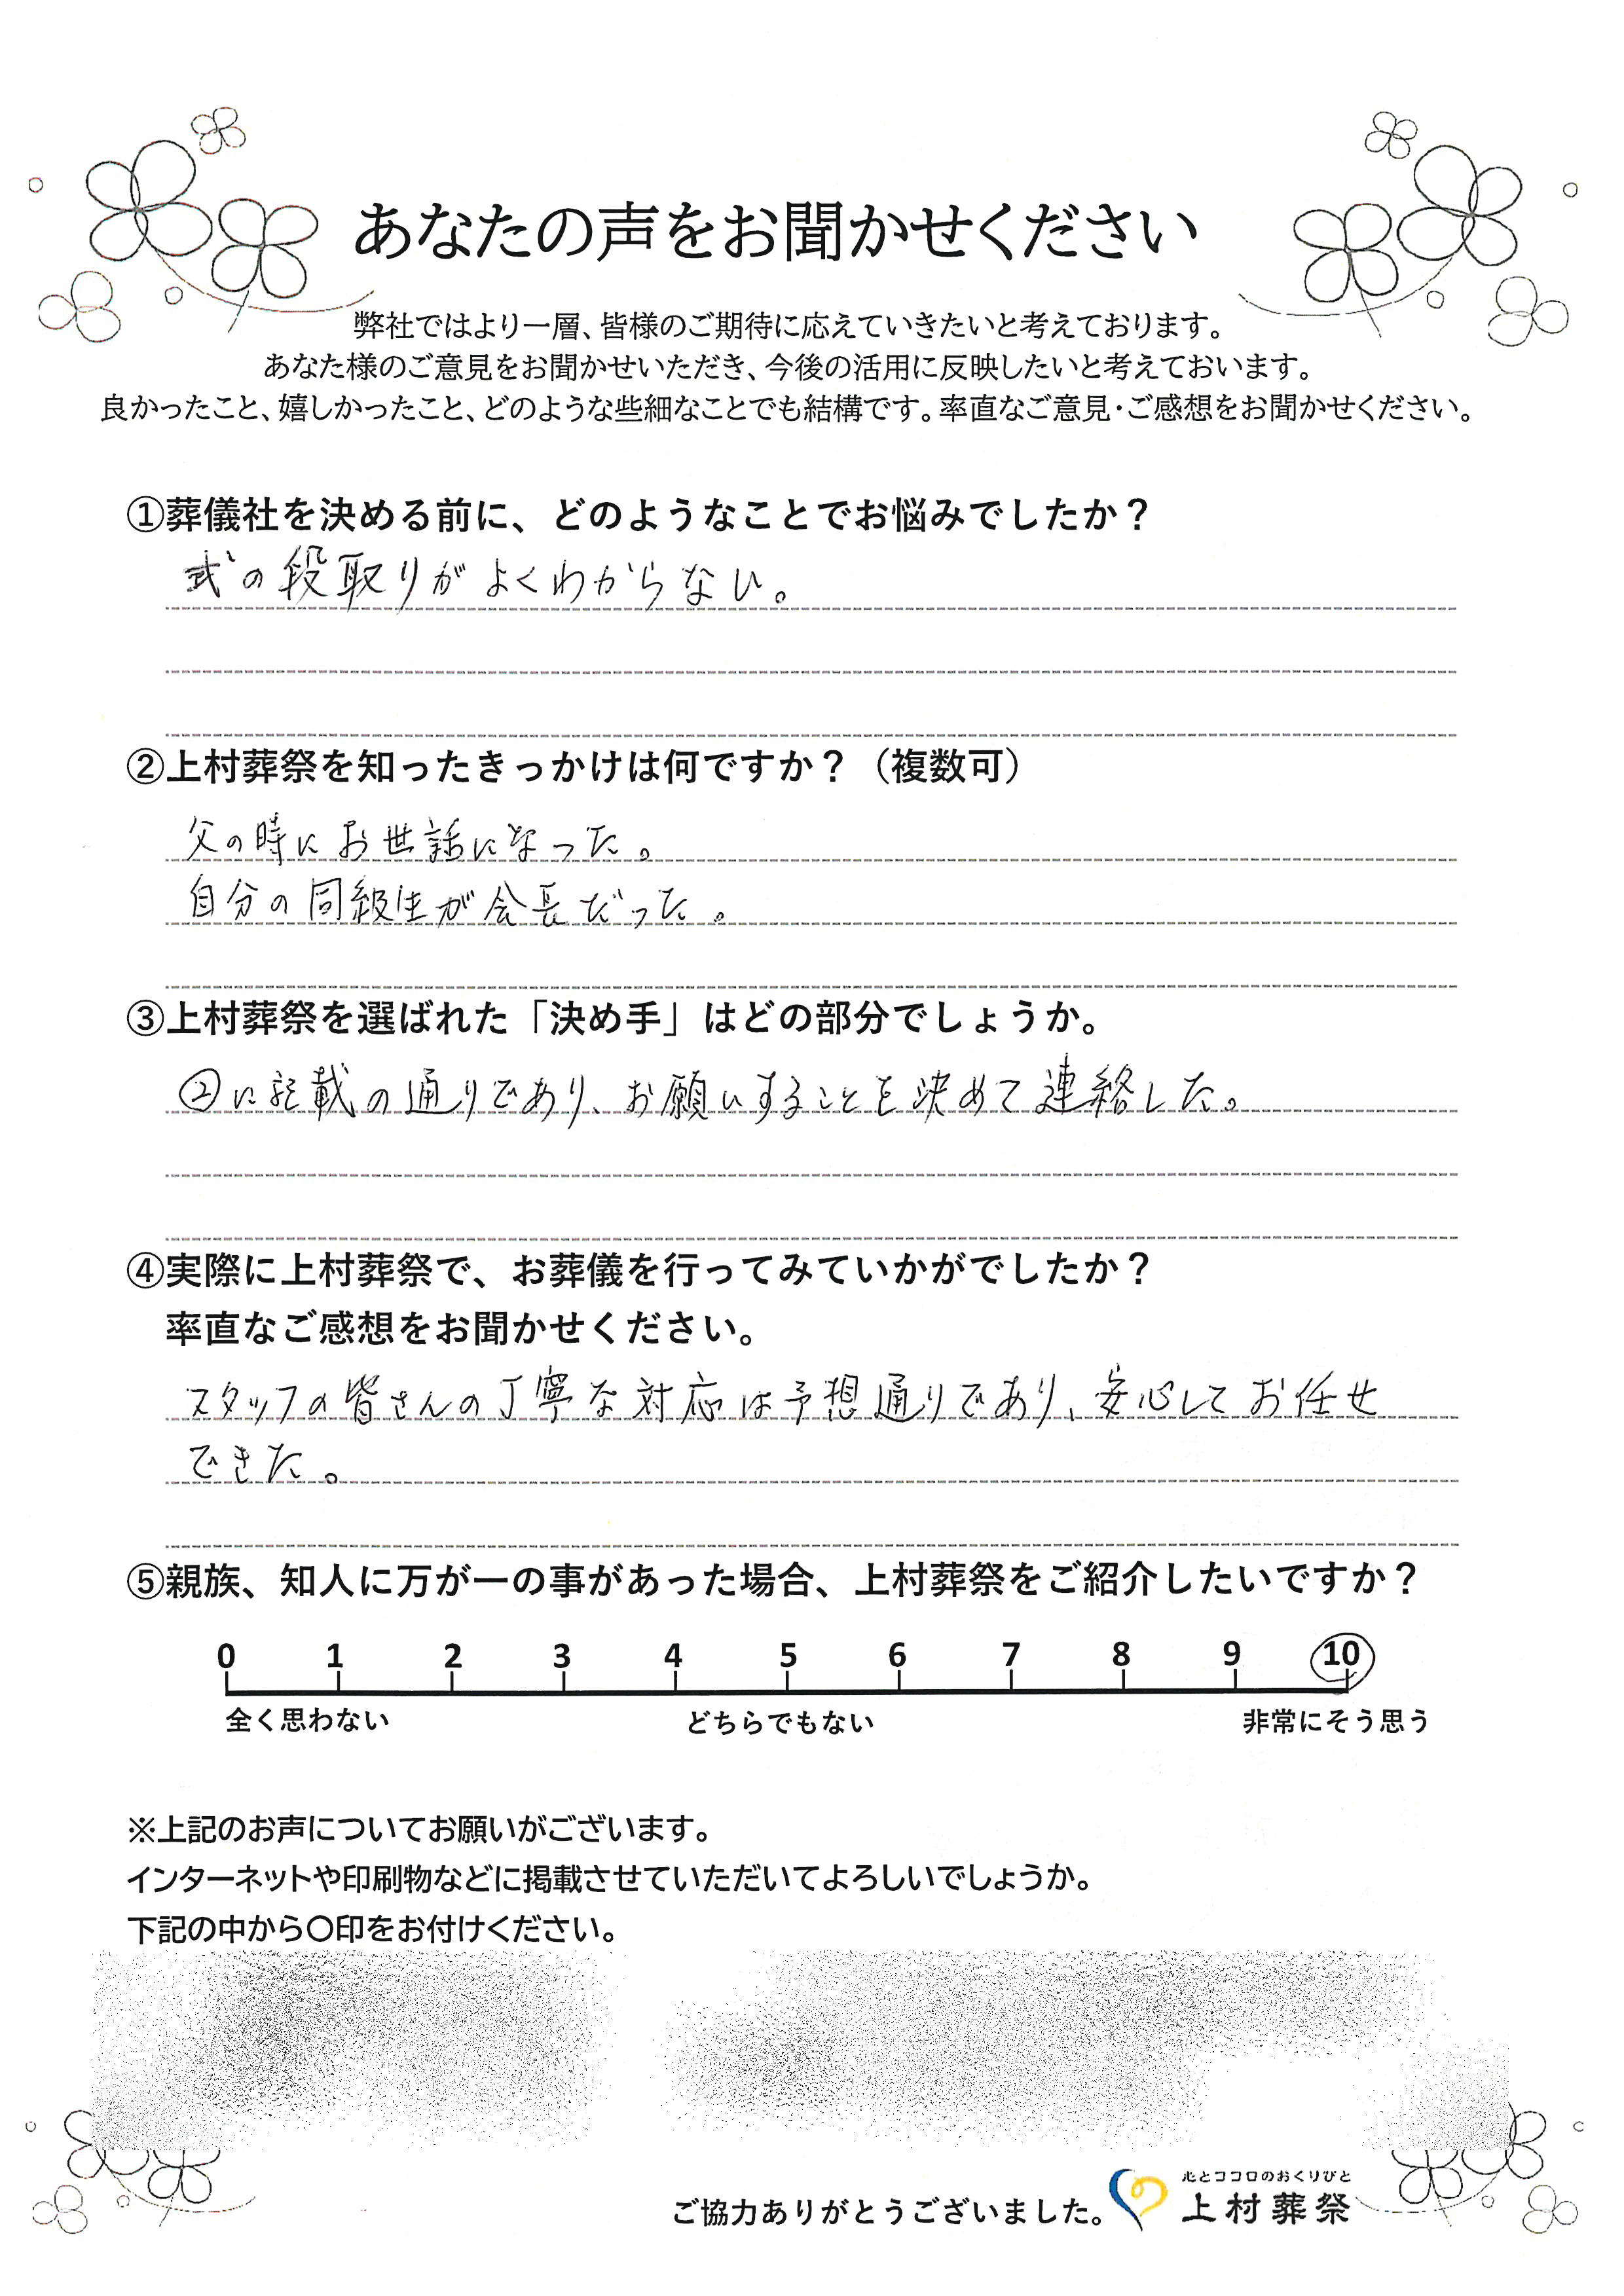 あなたの声をお聞かせください
弊社ではより一層、皆様のご期待に応えていきたいと考えております。
あなた様のご意見をお聞かせいただき、今後の活用に反映したいと考えておいます。
良かったこと、嬉しかったこと、どのような些細なことでも結構です。率直なご意見・ご感想をお聞かせください。
①葬儀社を決める前に、どのようなことでお悩みでしたか？
式の段取りがよくわからない。
②上村葬祭を知ったきっかけは何ですか？（複数可）
父の時にお世話になった。
自分の同級生が会長だった。
③上村葬祭を選ばれた「決め手」はどの部分でしょうか。
②に記載の通りであり、お願いすることを決めて連絡した。
④実際に上村葬祭で、お葬儀を行ってみていかがでしたか？
率直なご感想をお聞かせください。
スタッフの皆さんの丁寧な対応は予想通りであり、安心してお任せ
できた。
⑤親族、知人に万が一の事があった場合、上村葬祭をご紹介したいですか？
0 1 2 3 4 5 6 7 8 9 10
全く思わない どちらでもない 非常にそう思う
※上記のお声についてお願いがございます。
インターネットや印刷物などに掲載させていただいてよろしいでしょうか。
下記の中から〇印をお付けください。
心とココロのおくりびと
ご協力ありがとうございました。 上村葬祭